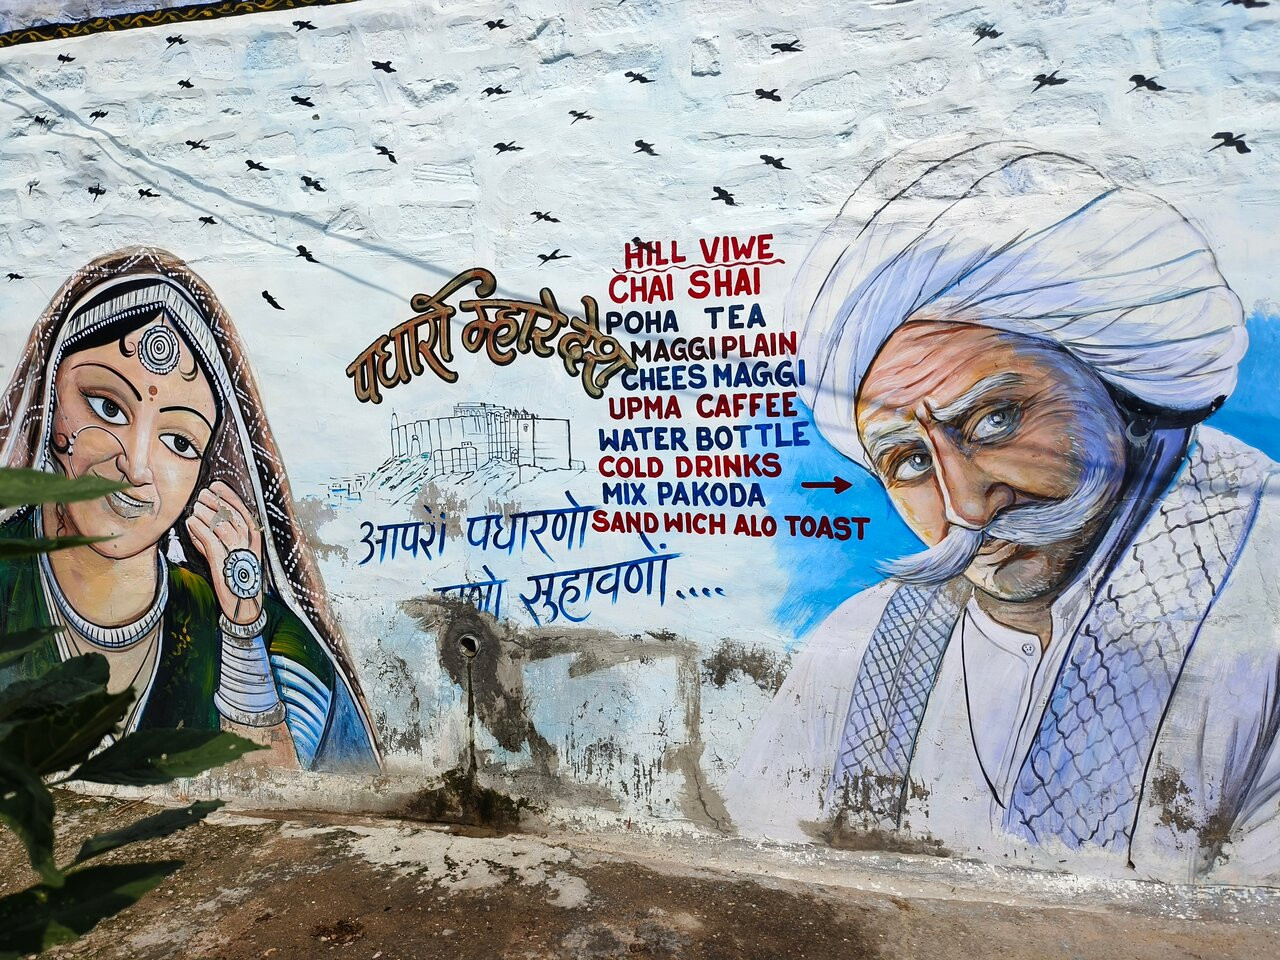 पधारो म्हारे देश
आपरो पधारणो
सुहावणो....
HILL VIWE
CHAI SHAI
POHA TEA
MAGGI PLAIN
CHEES MAGGI
UPMA CAFFEE
WATER BOTTLE
COLD DRINKS
MIX PAKODA
SANDWICH ALO TOAST